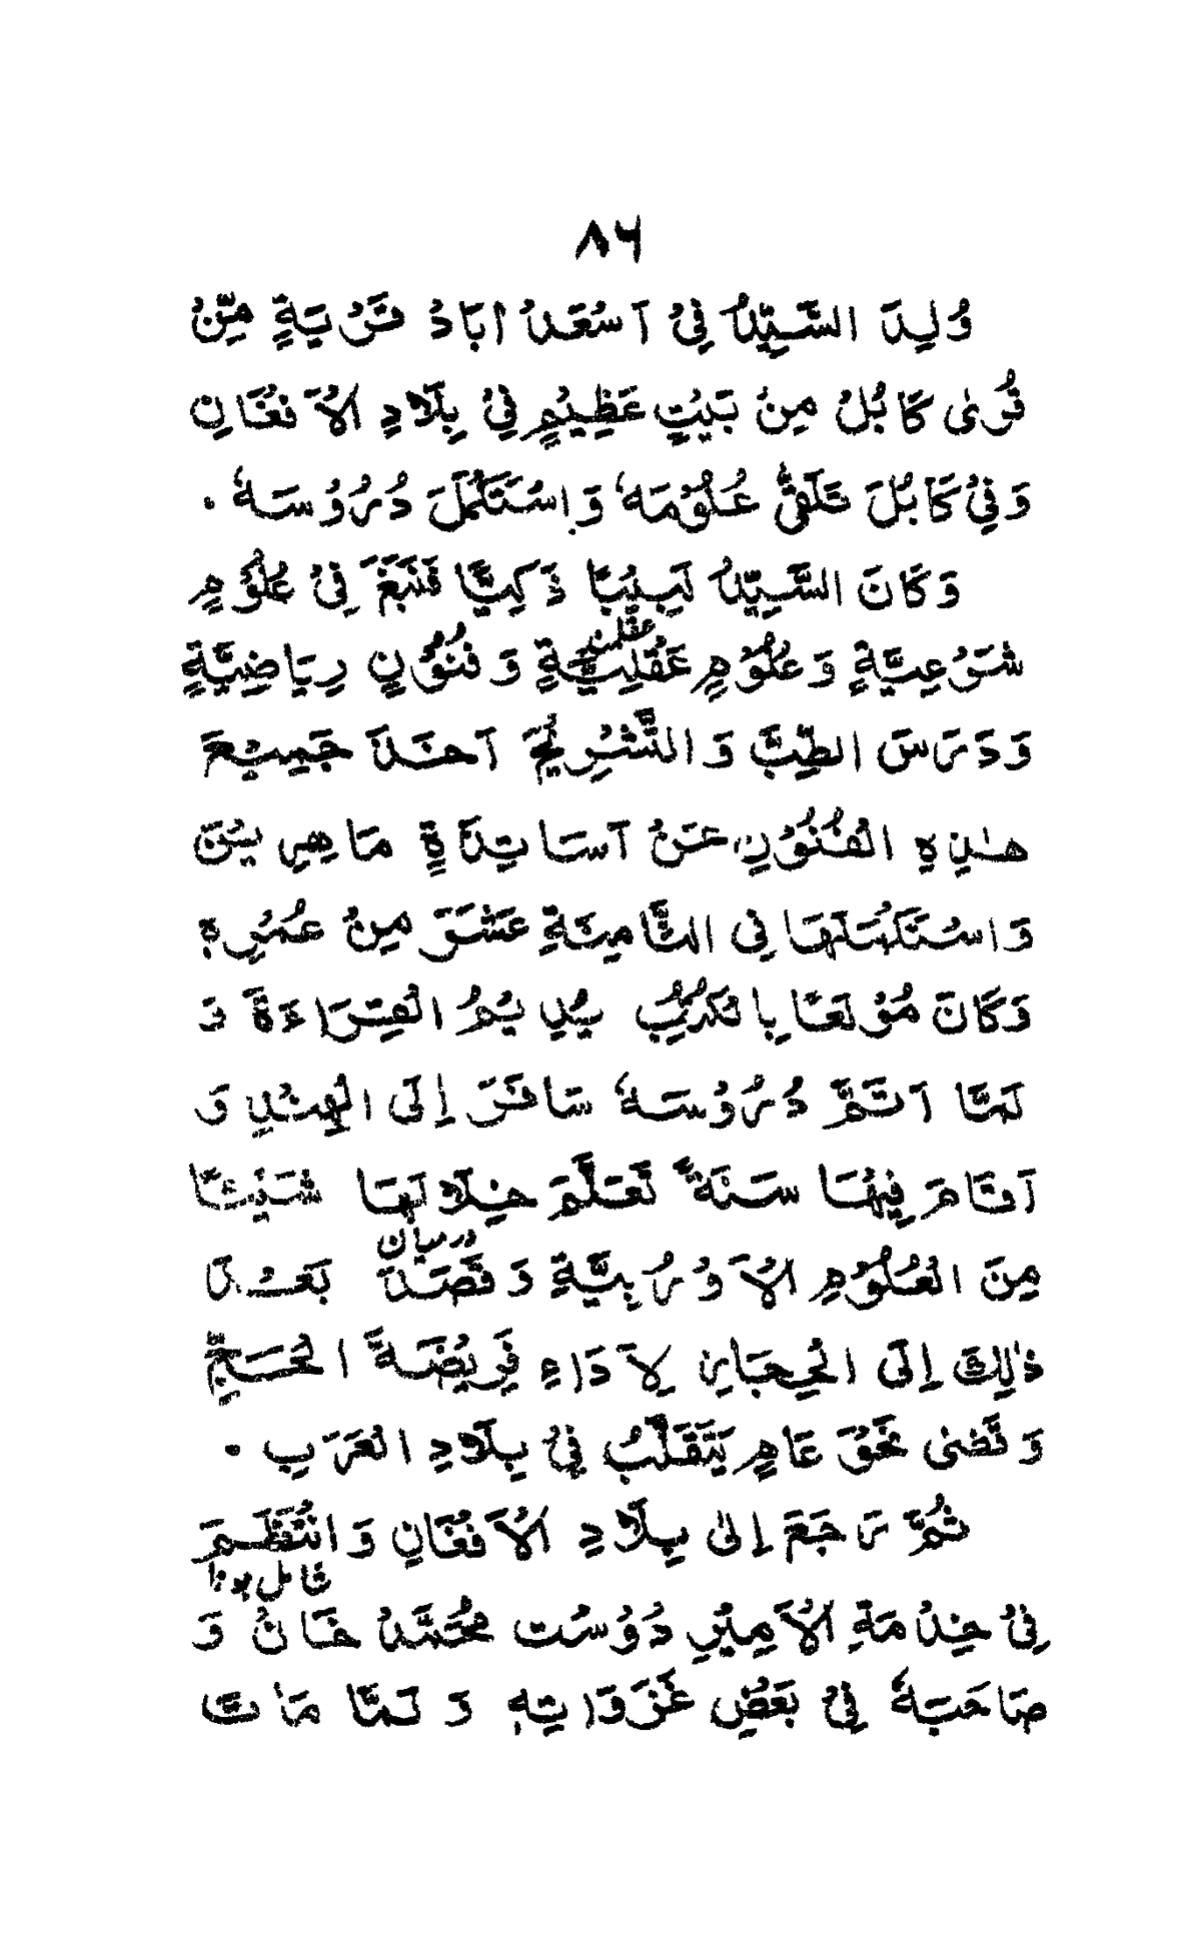 ٨٦
وُلِدَ السَّيِّدُ فِيْ اَسْعَدْ اٰبَادْ قَرْيَةٍ مِّنْ
قُرٰى كَابُلْ مِنْ بَيْتٍ عَظِيْمٍ فِيْ بِلَادِ الْاَفْغَانِ
وَفِيْ كَابُلَ تَلَقّٰى عُلُوْمَهٗ وَاسْتَكْمَلَ دُرُوْسَهٗ ۰
وَكَانَ السَّيِّدُ لَبِيْبًا ذَكِيًّا فَنَبَغَ فِيْ عُلُوْمٍ
شَرْعِيَّةٍ وَعُلُوْمٍ عَقْلِيَّةٍ وَفُنُوْنٍ رِيَاضِيَّةٍ
عقلمند
وَدَرَسَ الطِّبَّ وَالتَّشْرِيْحَ اَخَذَ جَمِيْعَ
هٰذِهِ الْفُنُوْنِ عَنْ اَسَاتِذَةٍ مَاهِرِيْنَ
وَاسْتَكْمَلَهَا فِى الثَّامِنَةِ عَشَرَ مِنْ عُمُرِهٖ
وَكَانَ مُوْلَعًا بِالْكُتُبِ يُدِيْمُ الْقِرَاءَةَ وَ
لَمَّا اَتَمَّ دُرُوْسَهٗ سَافَرَ اِلَى الْهِنْدِ وَ
اَقَامَ فِيْهَا سَنَةً تَعَلَّمَ خِلَالَهَا شَيْئًا
درمیان
مِنَ الْعُلُوْمِ الْاَوْرُبِيَّةِ وَقَصَدَ بَعْدَ
ذٰلِكَ اِلَى الْحِجَازِ لِاَدَاءِ فَرِيْضَةِ الْحَجِّ
وَقَضٰى نَحْوَ عَامٍ يَتَقَلَّبُ فِيْ بِلَادِ الْعَرَبِ ۰
ثُمَّ رَجَعَ اِلٰى بِلَادِ الْاَفْغَانِ وَانْتَظَمَ
شامل ہوا
فِيْ خِدْمَةِ الْاَمِيْرِ دُوْسْت مُحَمَّدْ خَانْ وَ
صَاحَبَهٗ فِيْ بَعْضِ غَزَوَاتِهٖ وَلَمَّا مَاتَ